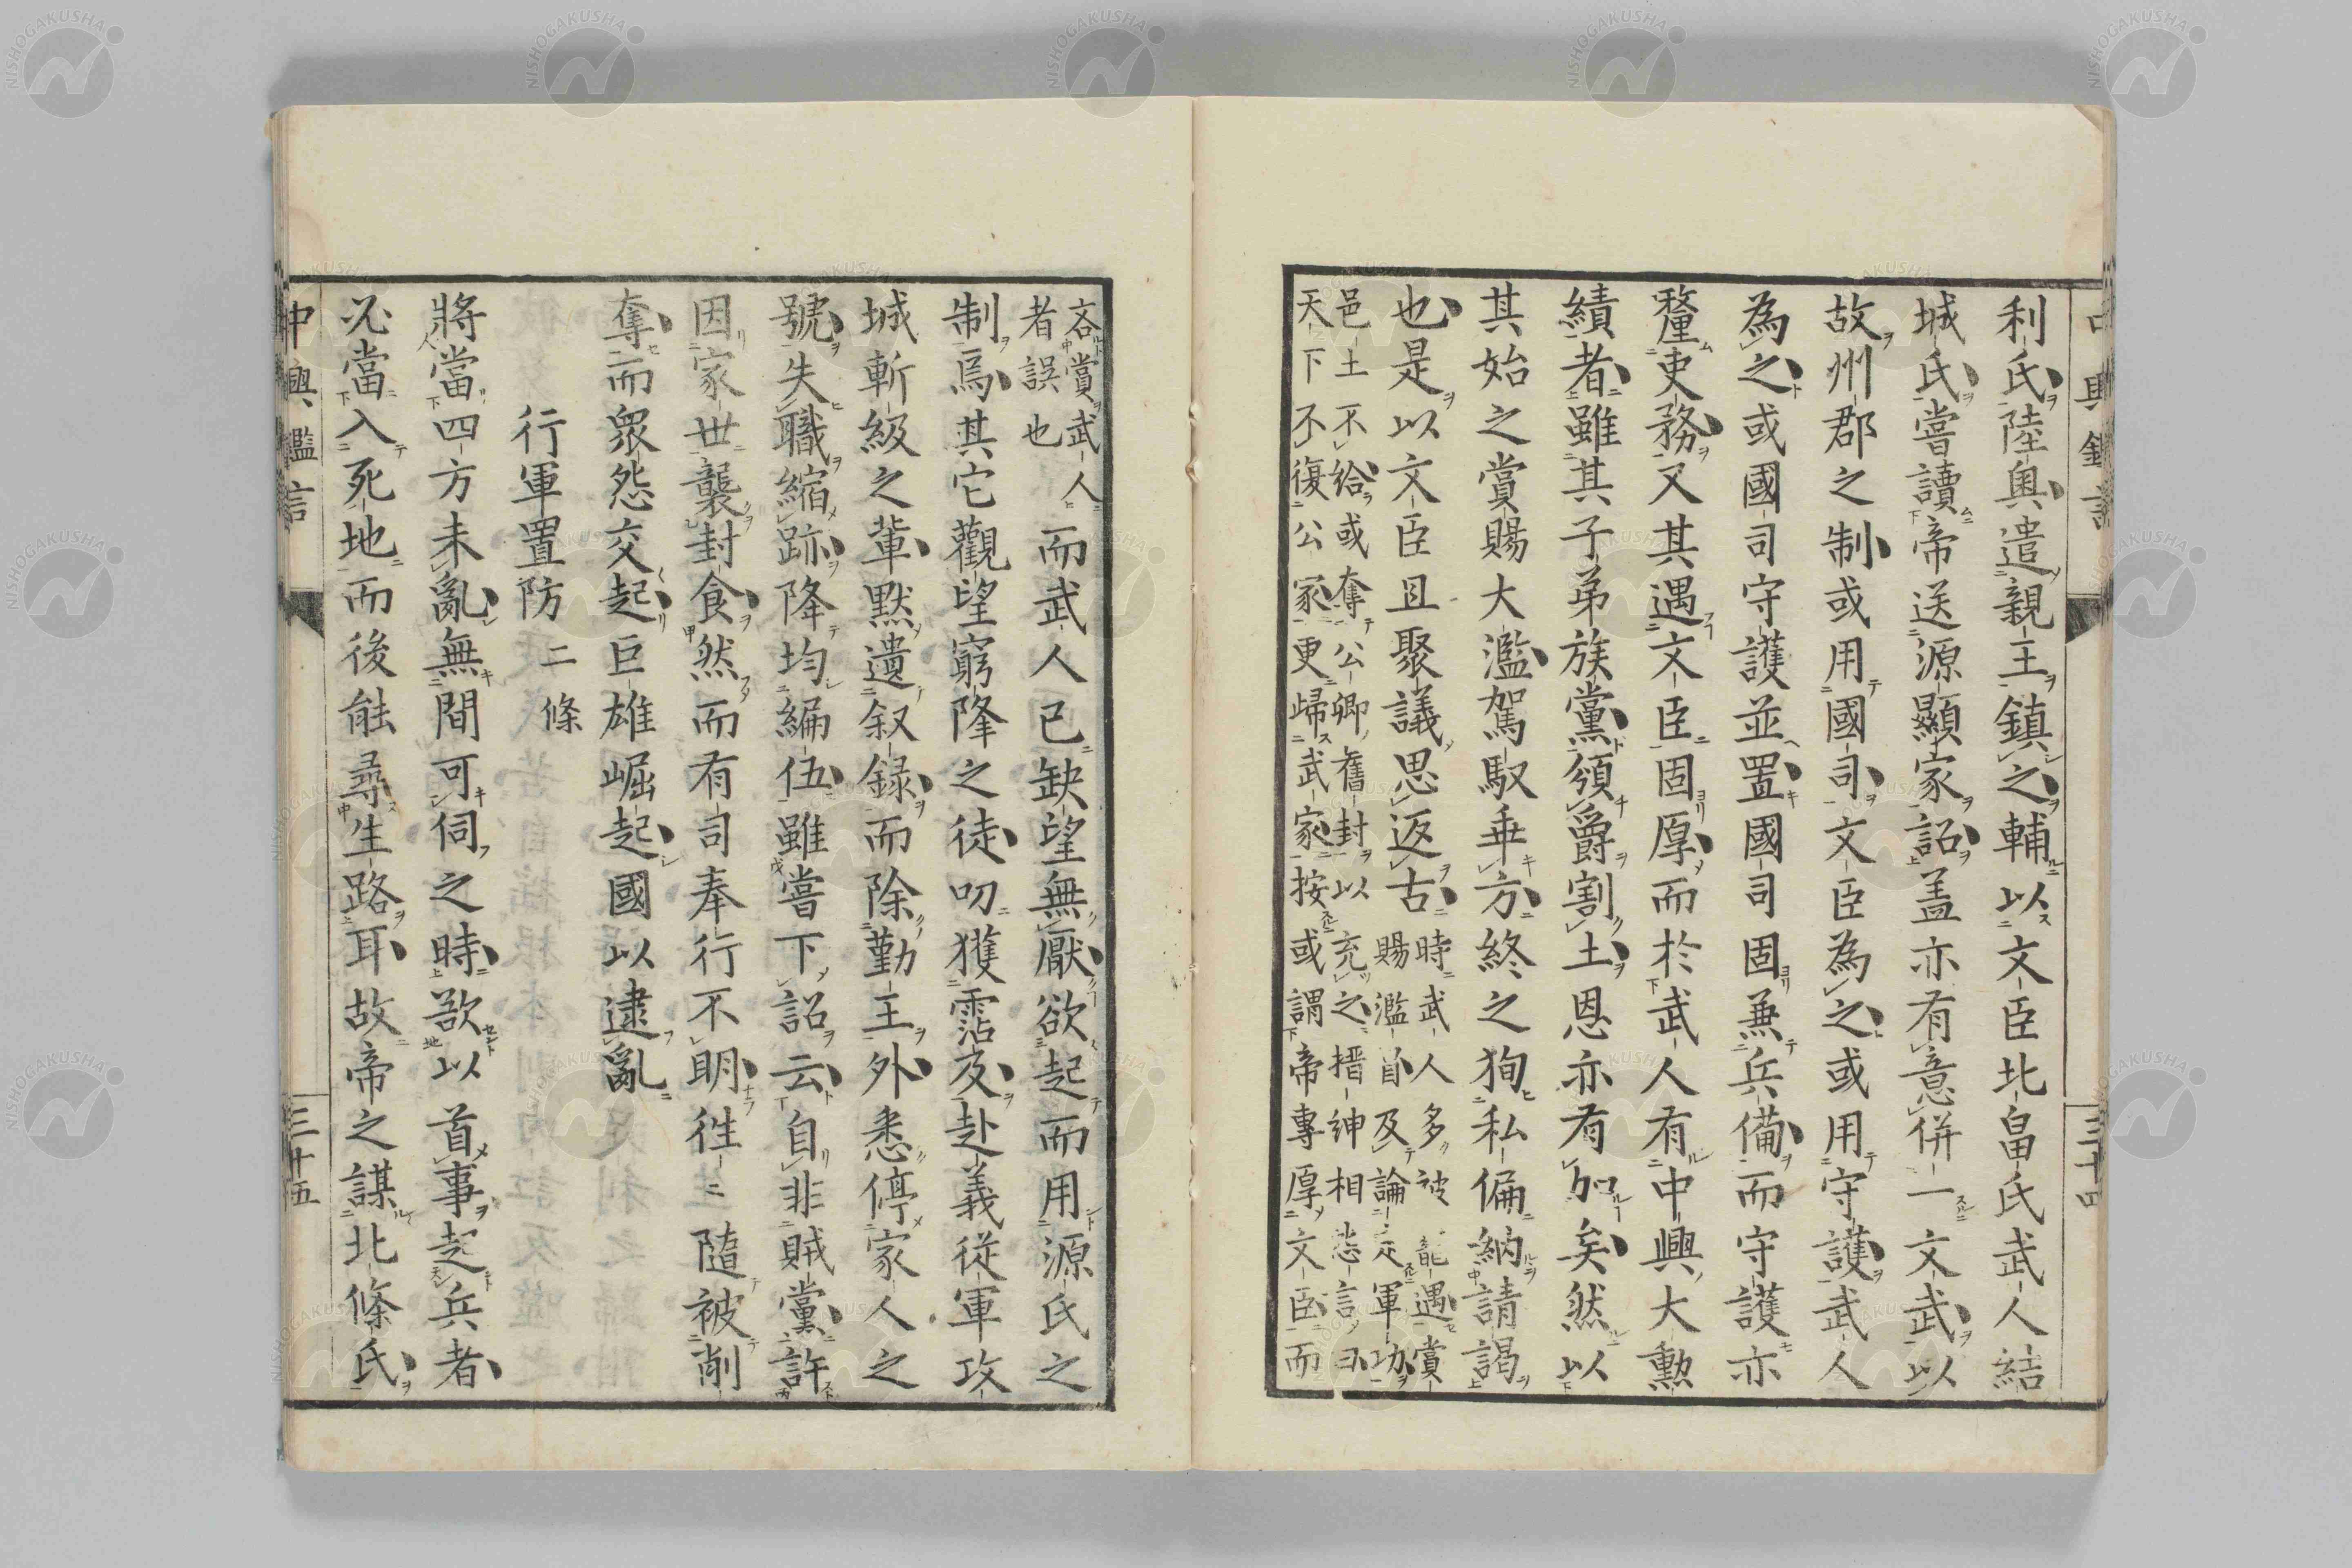 利氏陸奧遣親王鎮之輔以文臣北畠氏武人結
城氏嘗讀帝送源顯家詔盖亦有意併一文武以
故州郡之制或用國司文臣為之或用守護武人
為之或國司守護並置國司固兼兵備而守護亦
釐吏務又其遇文臣固厚而於武人有中興大勲
績者雖其子弟族黨頒爵割土恩亦有加矣然以
其始之賞賜大濫駕馭乖方終之狥私偏納請謁
也是以文臣且聚議思返古
時武人多被寵遇賞
賜濫首及論定軍功
邑土不給或奪公卿舊封以充之搢紳相恚言曰
天下不復公家更歸武家按或謂帝專厚文臣而
三十四
吝賞武人
者誤也
而武人已缺望無厭欲起而用源氏之
制焉其它觀望窮降之徒叨獲霑及赴義從軍攻
城斬級之輩黙遺叙録而除勤王外悉停家人之
號失職縮跡降均編伍雖嘗下詔云自非賊黨許
因家世襲封食然而有司奉行不明徃〻隨被削
奪而衆怨交起巨雄崛起國以逮亂
行軍置防 二條
將當四方未亂無間可伺之時欲以首事起兵者
必當入死地而後能尋生路耳故帝之謀北條氏
中興鑑言
三十五